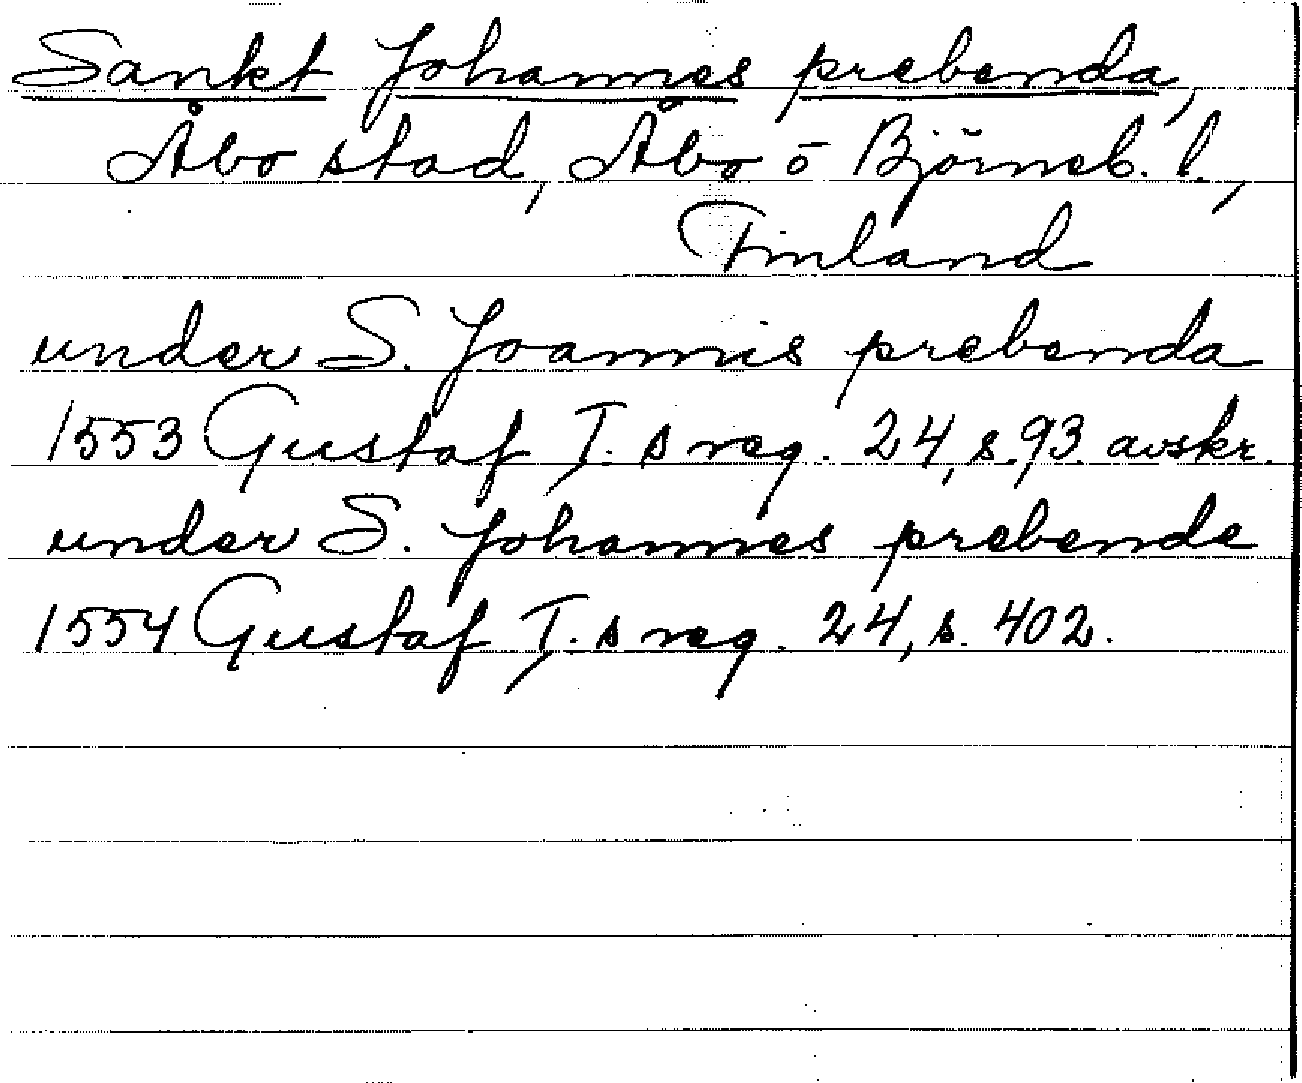 Sankt Johannes prebenda,
Åbo stad, Åbo o Björneb. l.,
Finland
under S. Joannis prebenda
1553 Gustaf I. s reg. 24, s. 93 avskr.
under S. Johannes prebende
1554 Gustaf I. s reg. 24, s. 402.